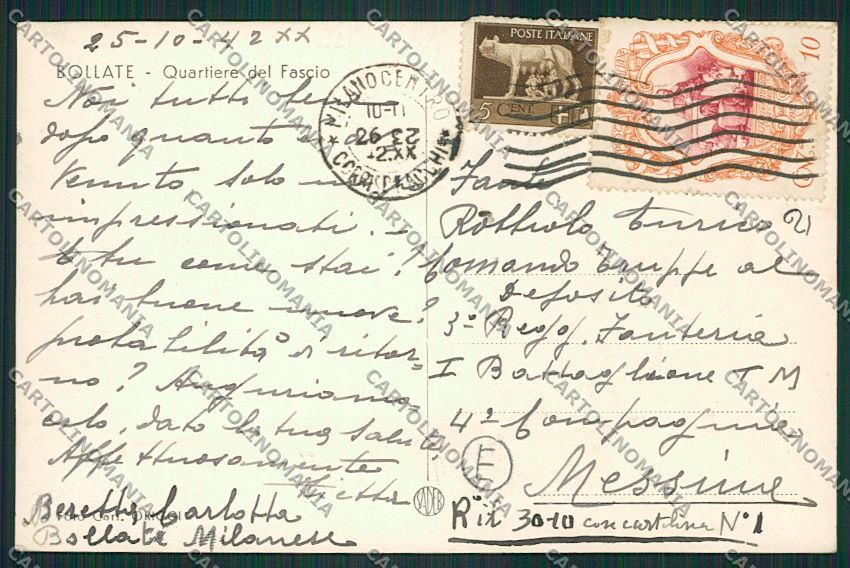 25-10-42 XX
BOLLATE - Quartiere del Fascio
Noi tutti bene
dopo quanto è
venuto solo
impressionati.
e tu come stai?
hai buone nuove?
probabilità di ritor-
no? Auguriamo-
celo, dato la tua salute
Affettuosamente
Beretta Carlotta
Foto Cart.
Bollate Milanese
SADER
POSTE ITALIANE
5 CENT.
10
MILANO CENTRO
10-11
CORR. E PACCHI
Fante
Enrico
Comando Truppe al
Deposito
3º Regg. Fanteria
I Battaglione T M
4ª Compagnia
Messina
E
Ris. 30-10 con cartolina Nº 1
CARTOLINOMANIA